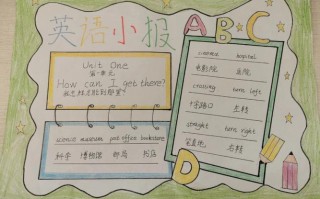 英语小报
A B C
Unit One
第一单元
How can I get there?
我怎样才能到那里?
science museum post office bookstore
科学 博物馆 邮局 书店
cinema hospital
电影院 医院
crossing turn left
十字路口 左转
straight turn right
笔直地 右转
D